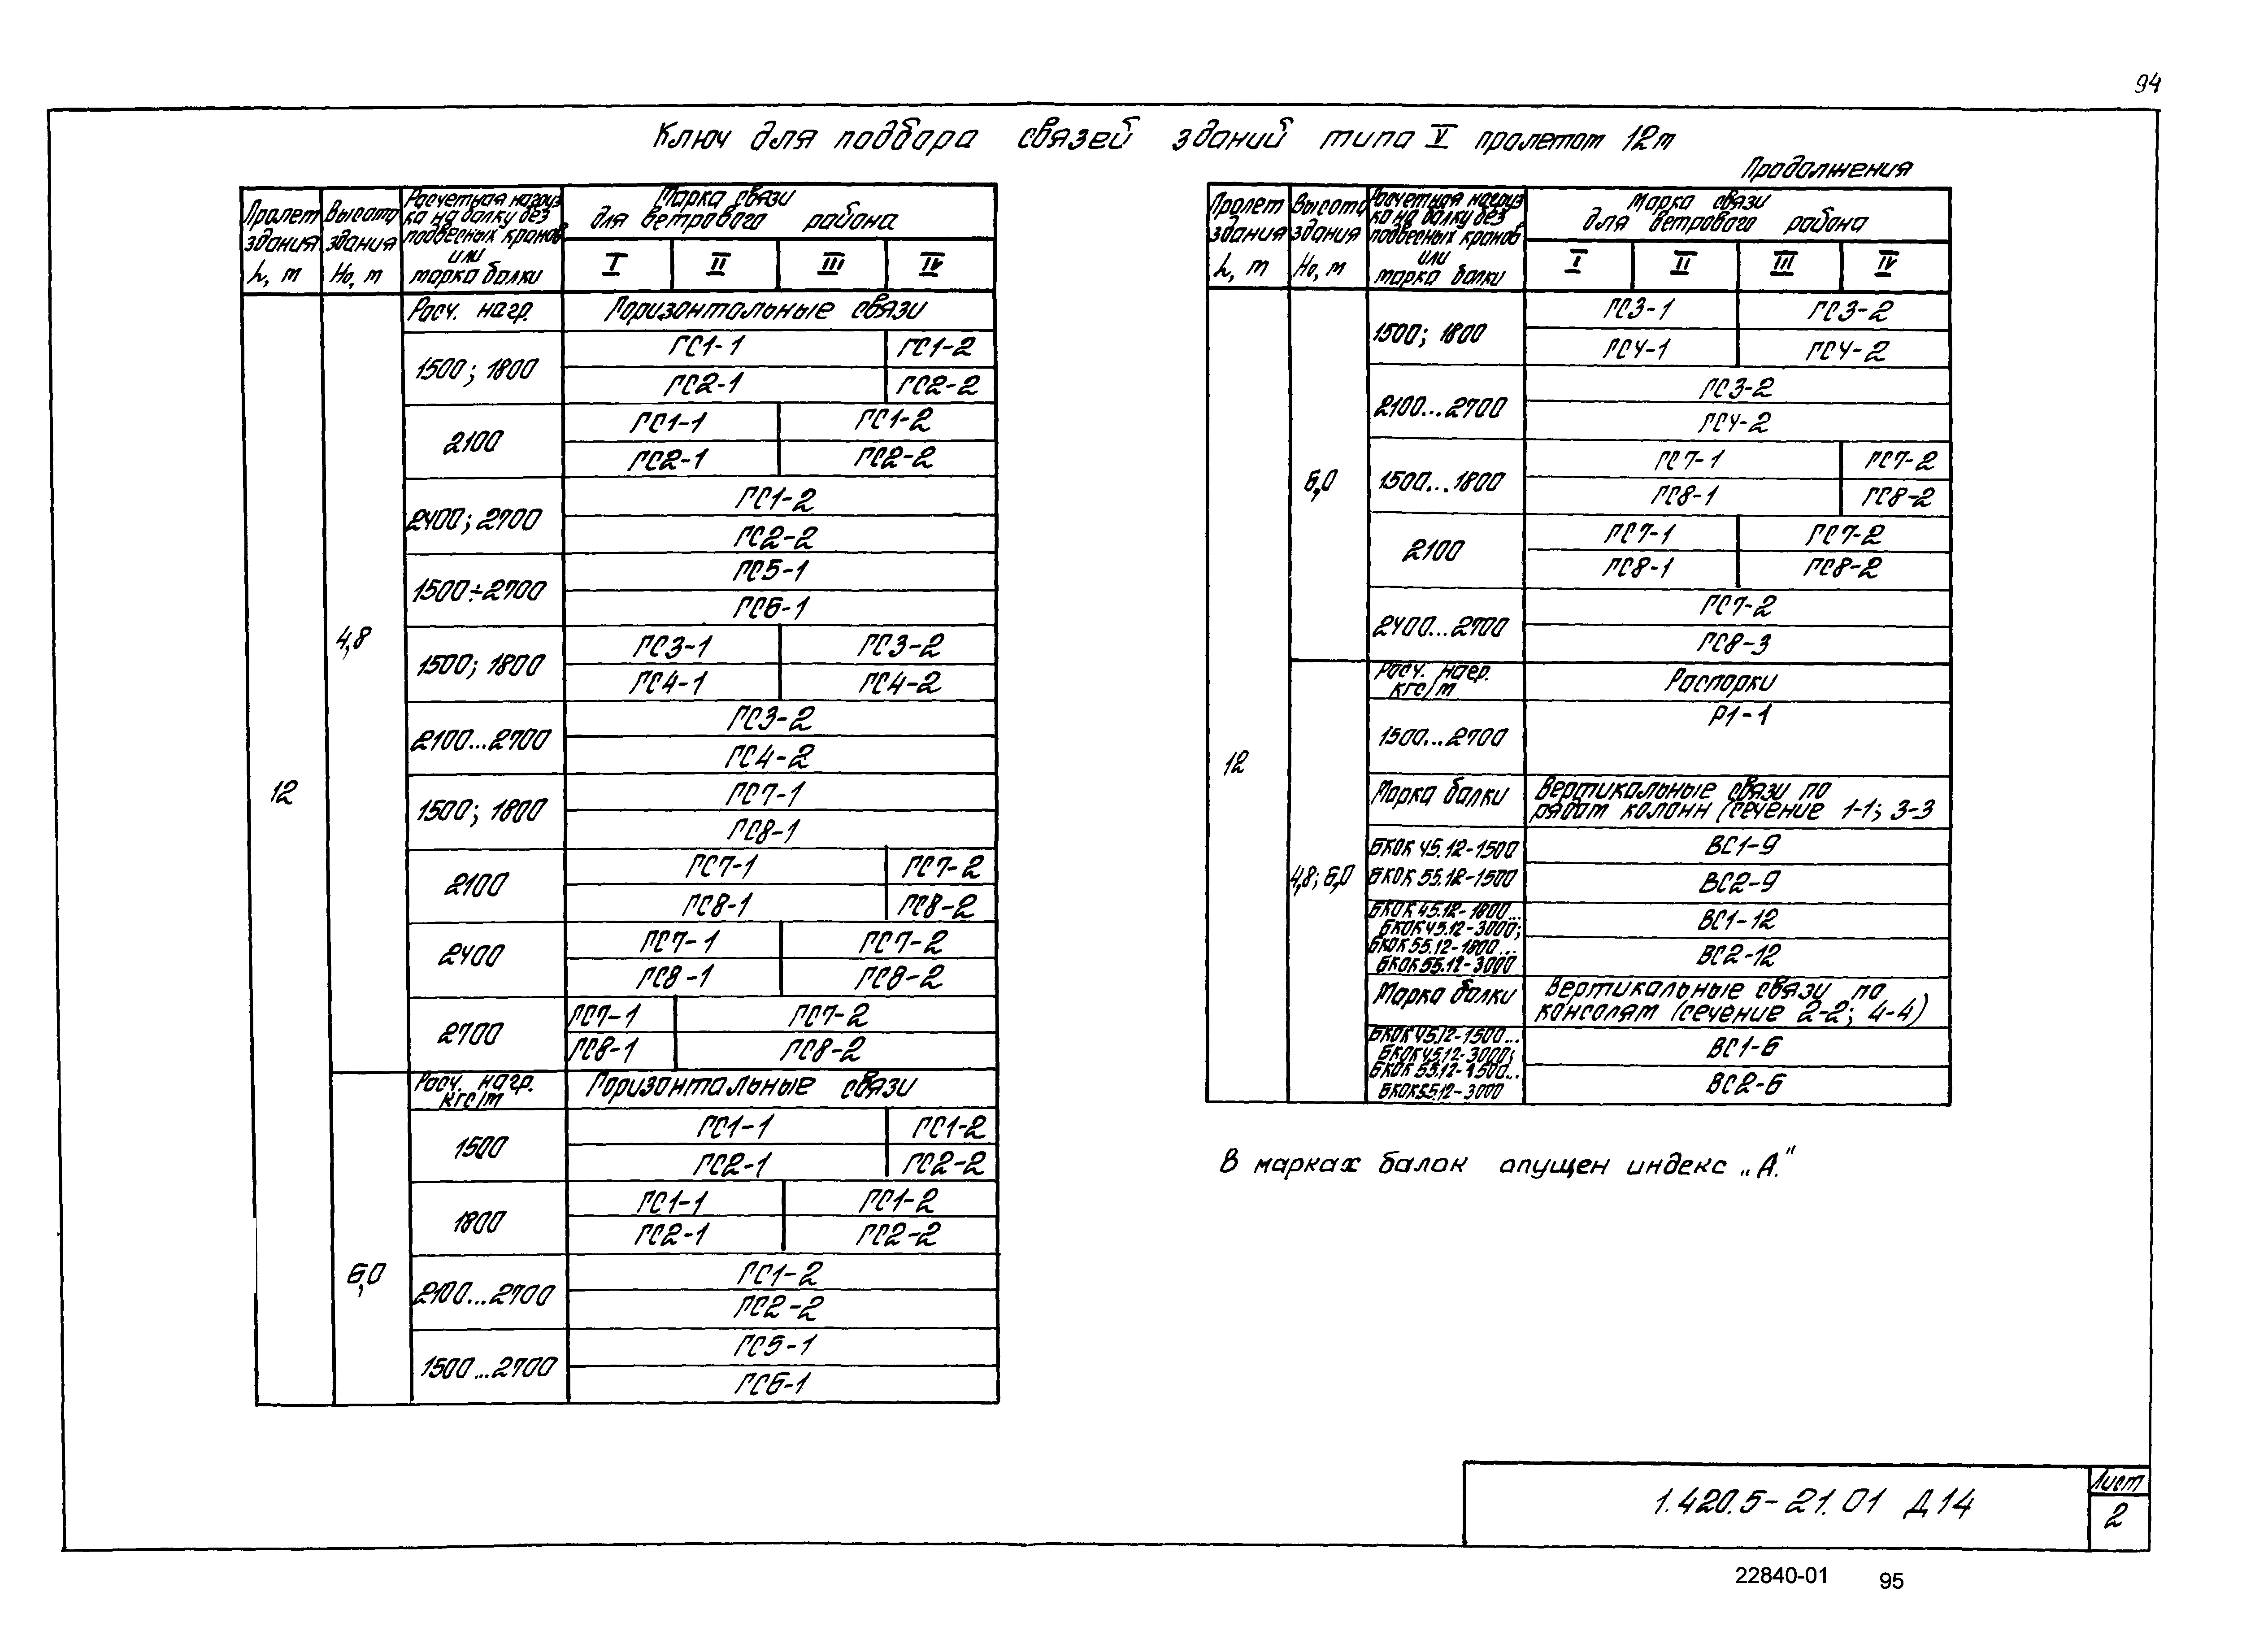 94
Ключ для подбора связей зданий типа V пролетом 12м
Продолжения
Пролет здания L, м
Высота здания Н₀, м
Расчетная нагруз
ка на балку без
подвесных кранов
или
марка балки
Марка связи
для ветрового района
I II III IV
12
4,8
Расч. нагр. Горизонтальные связи
1500; 1800
ГС1-1 ГС1-2
ГС2-1 ГС2-2
2100
ГС1-1 ГС1-2
ГС2-1 ГС2-2
2400; 2700
ГС1-2
ГС2-2
1500÷2700
ГС5-1
ГС6-1
1500; 1800
ГС3-1 ГС3-2
ГС4-1 ГС4-2
2100...2700
ГС3-2
ГС4-2
1500; 1800
ГС7-1
ГС8-1
2100
ГС7-1 ГС7-2
ГС8-1 ГС8-2
2400
ГС7-1 ГС7-2
ГС8-1 ГС8-2
2700
ГС7-1 ГС7-2
ГС8-1 ГС8-2
6,0
Расч. нагр.
кгс/м
Горизонтальные связи
1500
ГС1-1 ГС1-2
ГС2-1 ГС2-2
1800
ГС1-1 ГС1-2
ГС2-1 ГС2-2
2100...2700
ГС1-2
ГС2-2
1500...2700
ГС5-1
ГС6-1
Пролет здания L, м
Высота здания Н₀, м
Расчетная нагруз
ка на балку без
подвесных кранов
или
марка балки
Марка связи
для ветрового района
I II III IV
12
6,0
1500; 1800
ГС3-1 ГС3-2
ГС4-1 ГС4-2
2100...2700
ГС3-2
ГС4-2
1500...1800
ГС7-1 ГС7-2
ГС8-1 ГС8-2
2100
ГС7-1 ГС7-2
ГС8-1 ГС8-2
2400...2700
ГС7-2
ГС8-3
4,8; 6,0
Расч. нагр.
кгс/м
Распорки
1500...2700
Р1-1
Марка балки
Вертикальные связи по
рядам колонн (сечение 1-1; 3-3
БКОК 45.12-1500 ВС1-9
БКОК 55.12-1500 ВС2-9
БКОК 45.12-1800...
БКОК 45.12-3000;
БКОК 55.12-1800...
БКОК 55.12-3000
ВС1-12
ВС2-12
Марка балки
Вертикальные связи по
консолям (сечение 2-2; 4-4)
БКОК 45.12-1500...
БКОК 45.12-3000;
БКОК 55.12-1500...
БКОК 55.12-3000
ВС1-6
ВС2-6
В марках балок опущен индекс „А."
1.420.5-21.01 Д14
Лист
2
22840-01 95